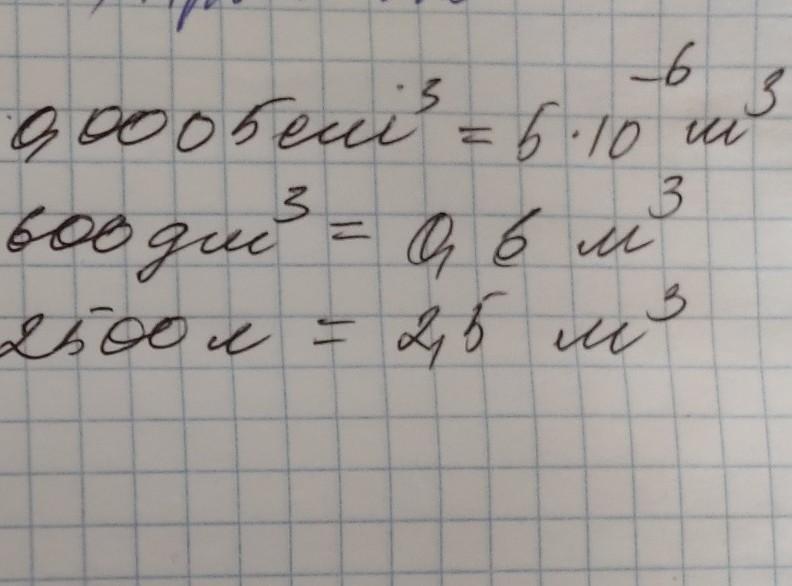 0,00005 см³ = 5·10⁻⁶ м³
600 дм³ = 0,6 м³
2500 л = 2,5 м³